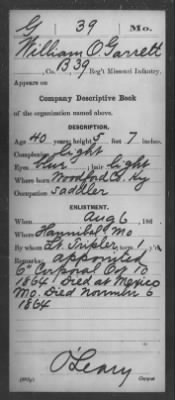 G 39 Mo.
William O. Garrett
, Co. B 39, Reg't Missouri Infantry.
Appears on
Company Descriptive Book
of the organization named above.
DESCRIPTION.
Age 40 years; height 5 feet 7 inches.
Complexion Light
Eyes blue; hair Light
Where born Woodford Co. Ky
Occupation Saddler
ENLISTMENT.
When Aug 6, 186
Where Hannibal Mo
By whom Lt. Tripler; term 1 y'rs
Remarks: appointed
6" Corporal Oct 10
1864. Died at Mexico
Mo. Died November 6
1864
O'Leary
Copyist